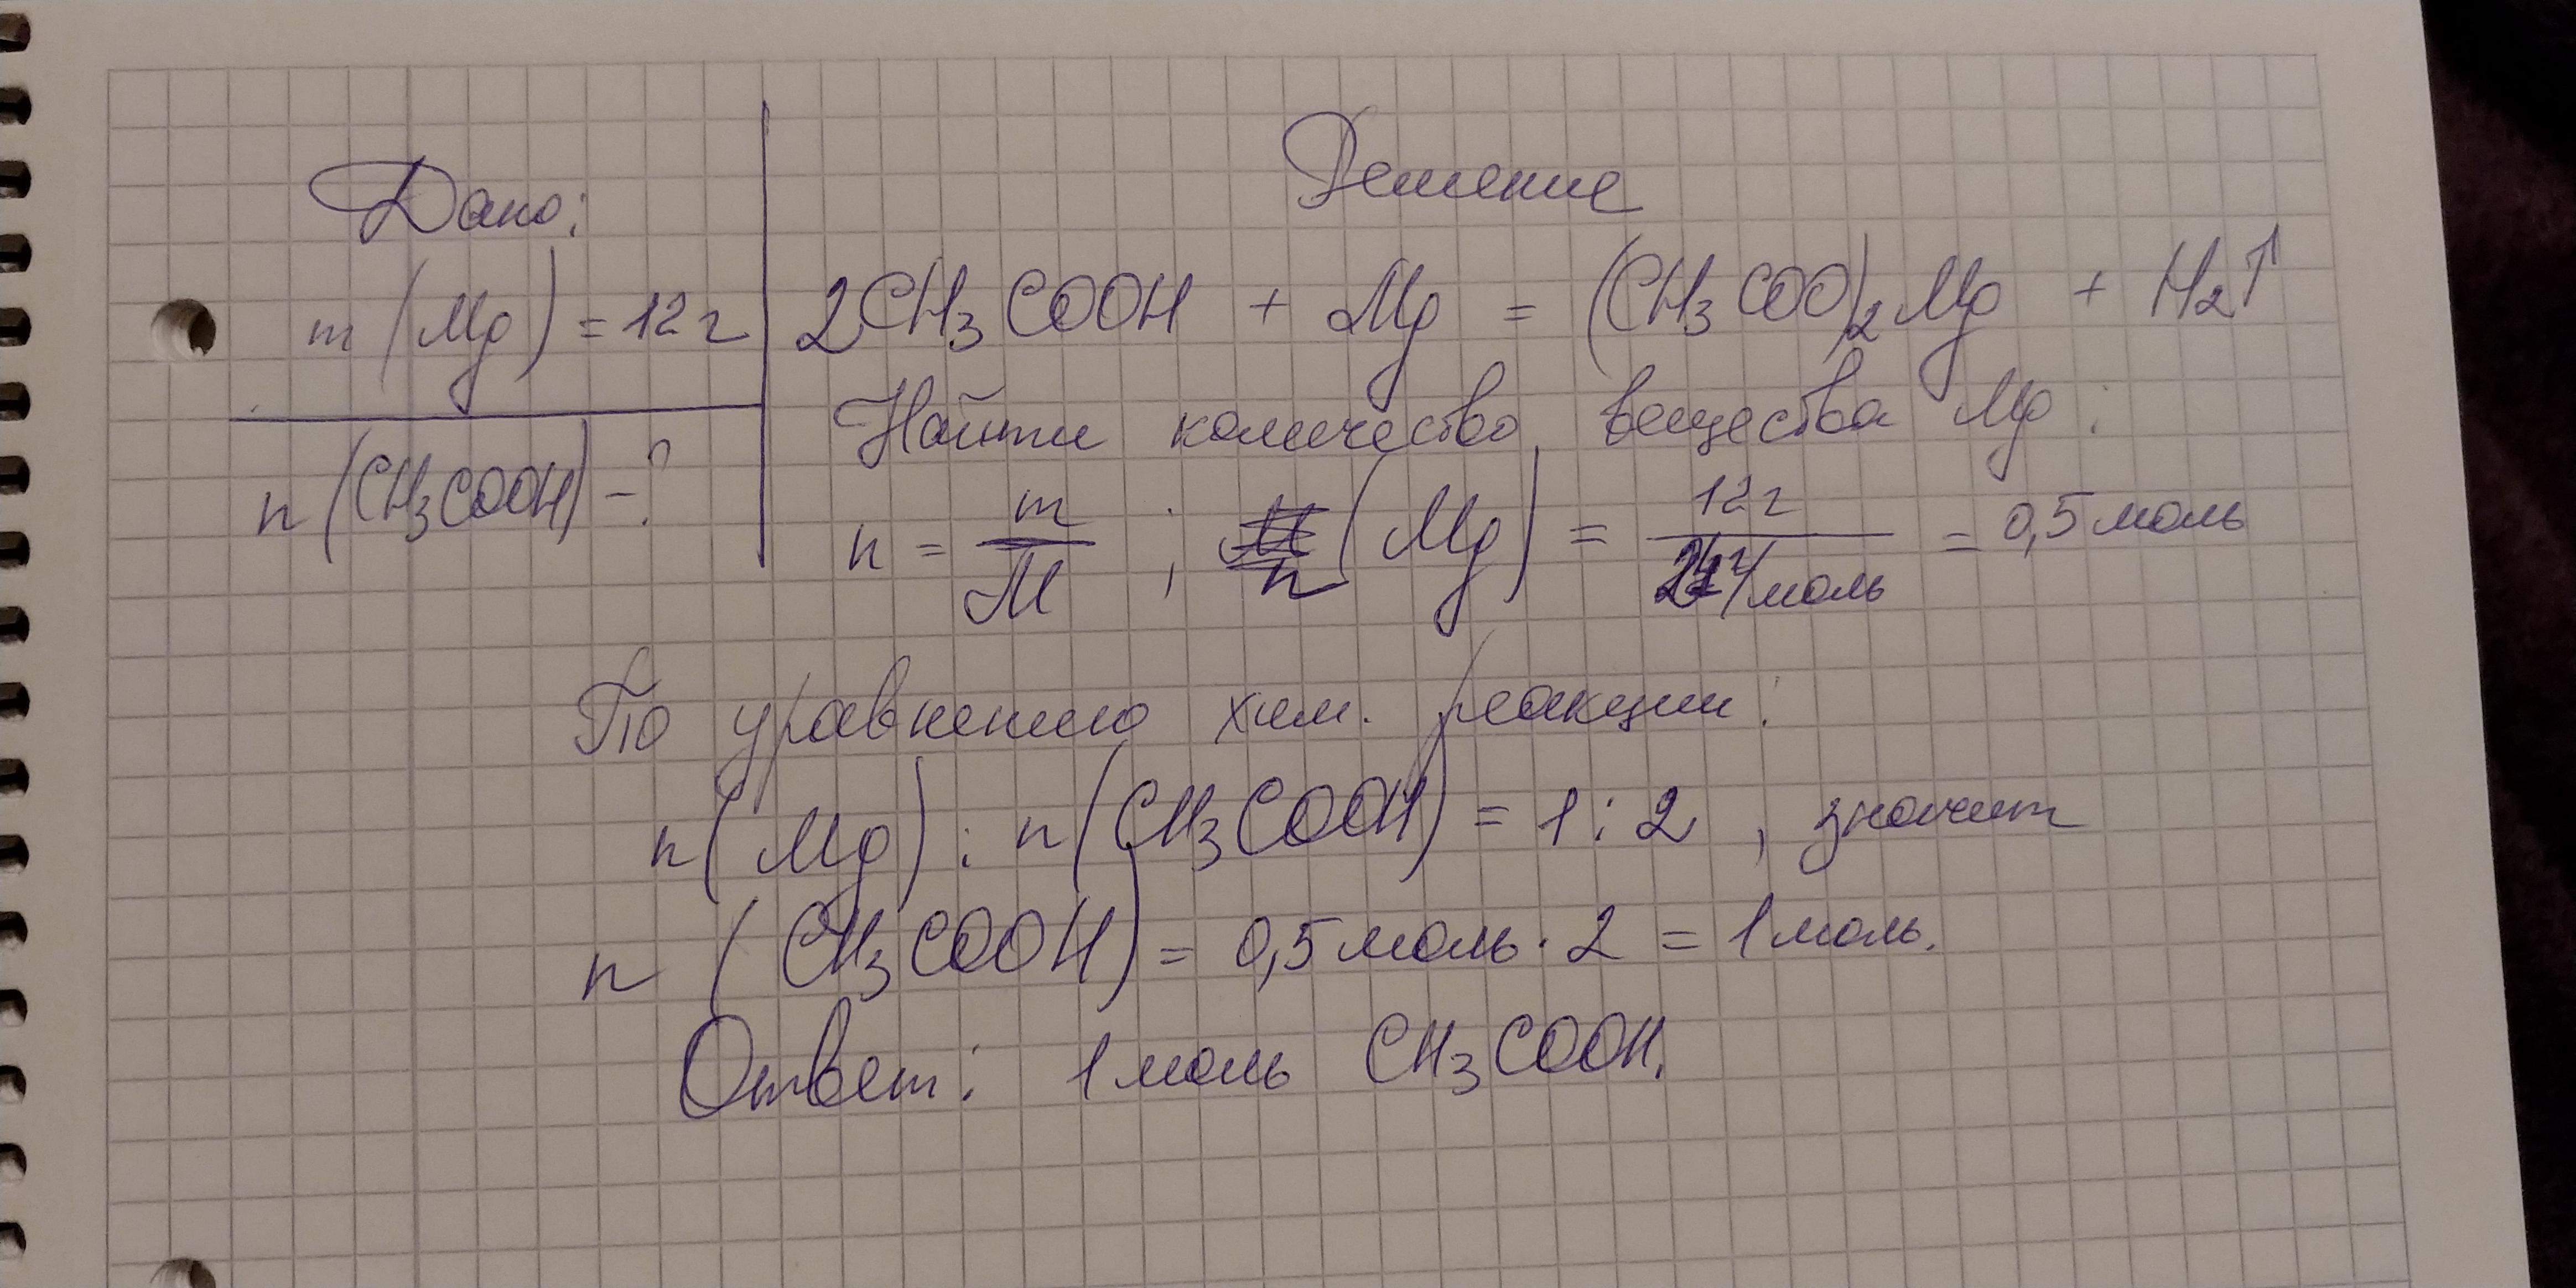 Дано:
m (Mg) = 12 г
n (CH₃COOH) - ?
Решение
2CH₃COOH + Mg = (CH₃COO)₂Mg + H₂↑
Найти количество вещества Mg:
n = m/M ; n (Mg) = 12 г / 24 г/моль = 0,5 моль
По уравнению хим. реакции:
n (Mg) : n (CH₃COOH) = 1 : 2 , значит
n (CH₃COOH) = 0,5 моль · 2 = 1 моль.
Ответ: 1 моль CH₃COOH.